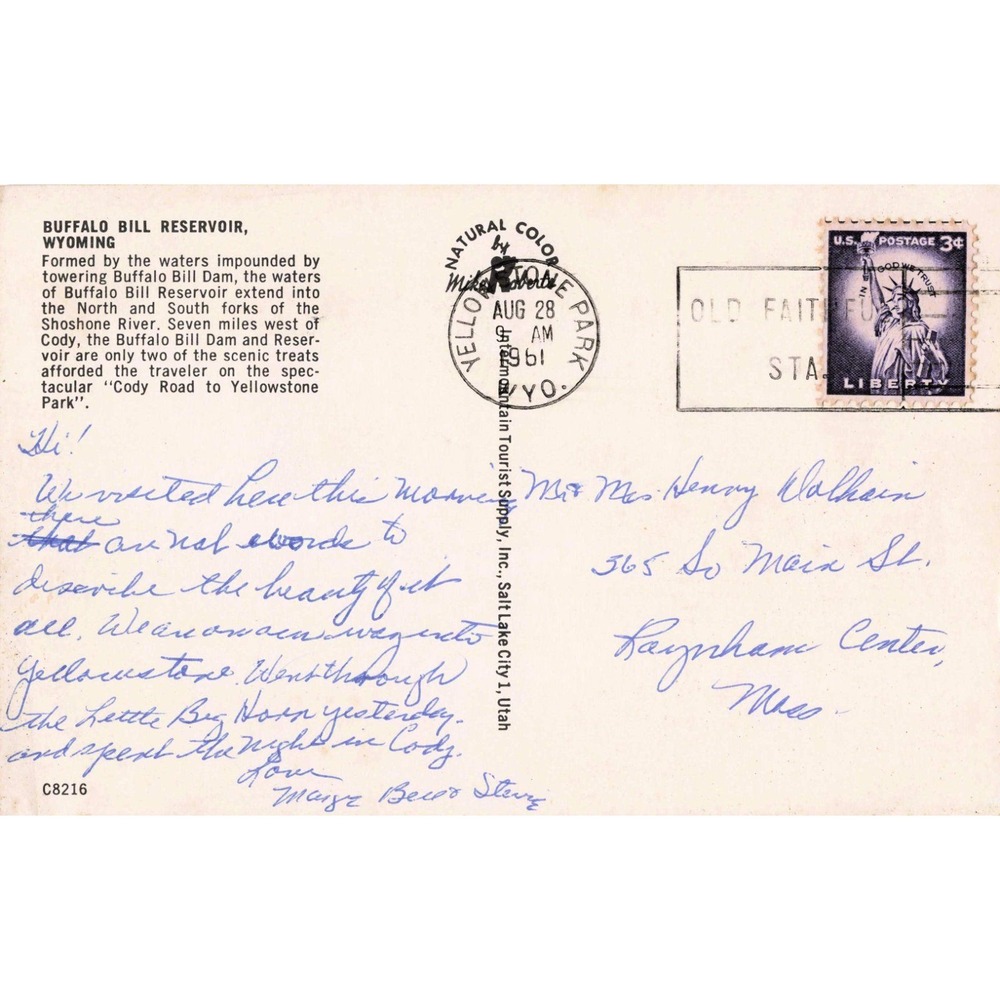 BUFFALO BILL RESERVOIR,
WYOMING
Formed by the waters impounded by
towering Buffalo Bill Dam, the waters
of Buffalo Bill Reservoir extend into
the North and South forks of the
Shoshone River. Seven miles west of
Cody, the Buffalo Bill Dam and Reser-
voir are only two of the scenic treats
afforded the traveler on the spec-
tacular "Cody Road to Yellowstone
Park".
Hi!
We visited here this morning
there
that are not words to
describe the beauty of it
all. We are on our way into
Yellowstone. Went through
the Little Big Horn yesterday.
and spent the night in Cody.
Love
Marge & Stevie
C8216
NATURAL COLOR
by
Mike Roberts
YELLOWSTONE PARK
AUG 28
9 AM
1961
WYO.
Intermountain Tourist Supply, Inc., Salt Lake City 1, Utah
OLD FAITHFUL
STA.
U.S. POSTAGE 3¢
IN GOD WE TRUST
LIBERTY
Mr & Mrs. Henry
365 So Main St.
Raynham Center,
Mass.